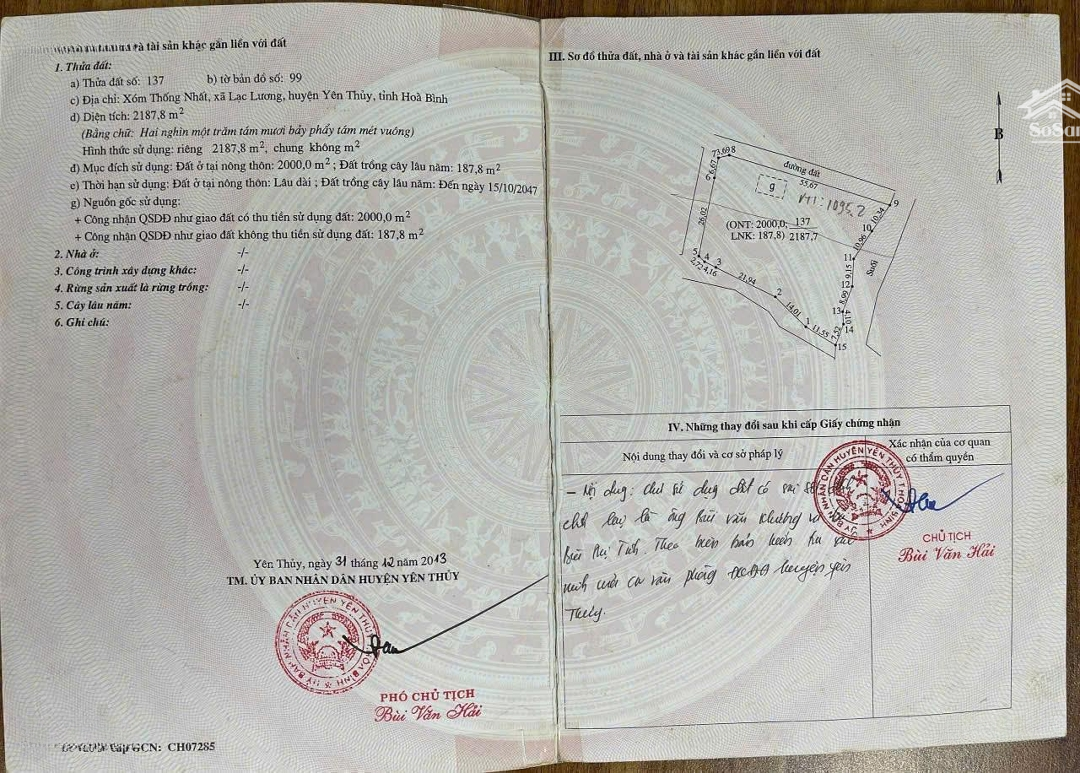 và tài sản khác gắn liền với đất
1. Thửa đất:
a) Thửa đất số: 137 b) tờ bản đồ số: 99
c) Địa chỉ: Xóm Thống Nhất, xã Lạc Lương, huyện Yên Thủy, tỉnh Hoà Bình
d) Diện tích: 2187,8 m²
(Bằng chữ: Hai nghìn một trăm tám mươi bảy phẩy tám mét vuông)
Hình thức sử dụng: riêng 2187,8 m²; chung không m²
đ) Mục đích sử dụng: Đất ở tại nông thôn: 2000,0 m² ; Đất trồng cây lâu năm: 187,8 m²
e) Thời hạn sử dụng: Đất ở tại nông thôn: Lâu dài ; Đất trồng cây lâu năm: Đến ngày 15/10/2047
g) Nguồn gốc sử dụng:
+ Công nhận QSDĐ như giao đất có thu tiền sử dụng đất: 2000,0 m²
+ Công nhận QSDĐ như giao đất không thu tiền sử dụng đất: 187,8 m²
2. Nhà ở: -/-
3. Công trình xây dựng khác: -/-
4. Rừng sản xuất là rừng trồng: -/-
5. Cây lâu năm: -/-
6. Ghi chú:
Yên Thủy, ngày 31 tháng 12 năm 2013
TM. ỦY BAN NHÂN DÂN HUYỆN YÊN THỦY
ỦY BAN NHÂN DÂN HUYỆN YÊN THỦY T.HÒA BÌNH
PHÓ CHỦ TỊCH
Bùi Văn Hải
cấp GCN: CH07285
III. Sơ đồ thửa đất, nhà ở và tài sản khác gắn liền với đất
SoSan
B
đường đất
73,698
55,07
6,67
6
g
VT1: 1095,2
9
10,34
10
10,96
26,02
(ONT: 2000,0; 137
LNK: 187,8) 2187,7
11
9,15
Suối
5 4 3
2,72 4,16
21,94
2
12
8,99
14,01
13
4,10
14
1
11,55
7,52
15
IV. Những thay đổi sau khi cấp Giấy chứng nhận
Nội dung thay đổi và cơ sở pháp lý
Xác nhận của cơ quan
có thẩm quyền
- Nội dung: Chủ sử dụng đất có
là ông Bùi văn Khương
Bùi Thị Tình. Theo biên bản
văn phòng ĐKQSDĐ huyện yên
Thủy.
ỦY BAN NHÂN DÂN HUYỆN YÊN THỦY T.HÒA BÌNH
CHỦ TỊCH
Bùi Văn Hải